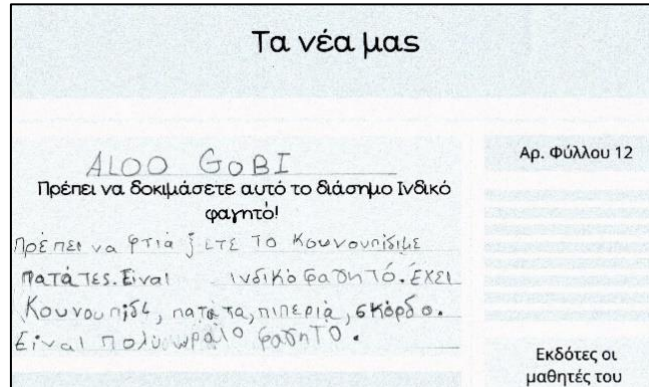 Τα νέα μας
ALOO GOBI
Πρέπει να δοκιμάσετε αυτό το διάσημο Ινδικό
φαγητό!
Πρέπει να φτιάξετε το κουνουπίδιμε
πατάτες. Είναι ινδικό φαγητό. Έχει
κουνουπίδι, πατάτα, πιπεριά, σκόρδο.
Είναι πολυ ωραίο φαγητό.
Αρ. Φύλλου 12
Εκδότες οι
μαθητές του